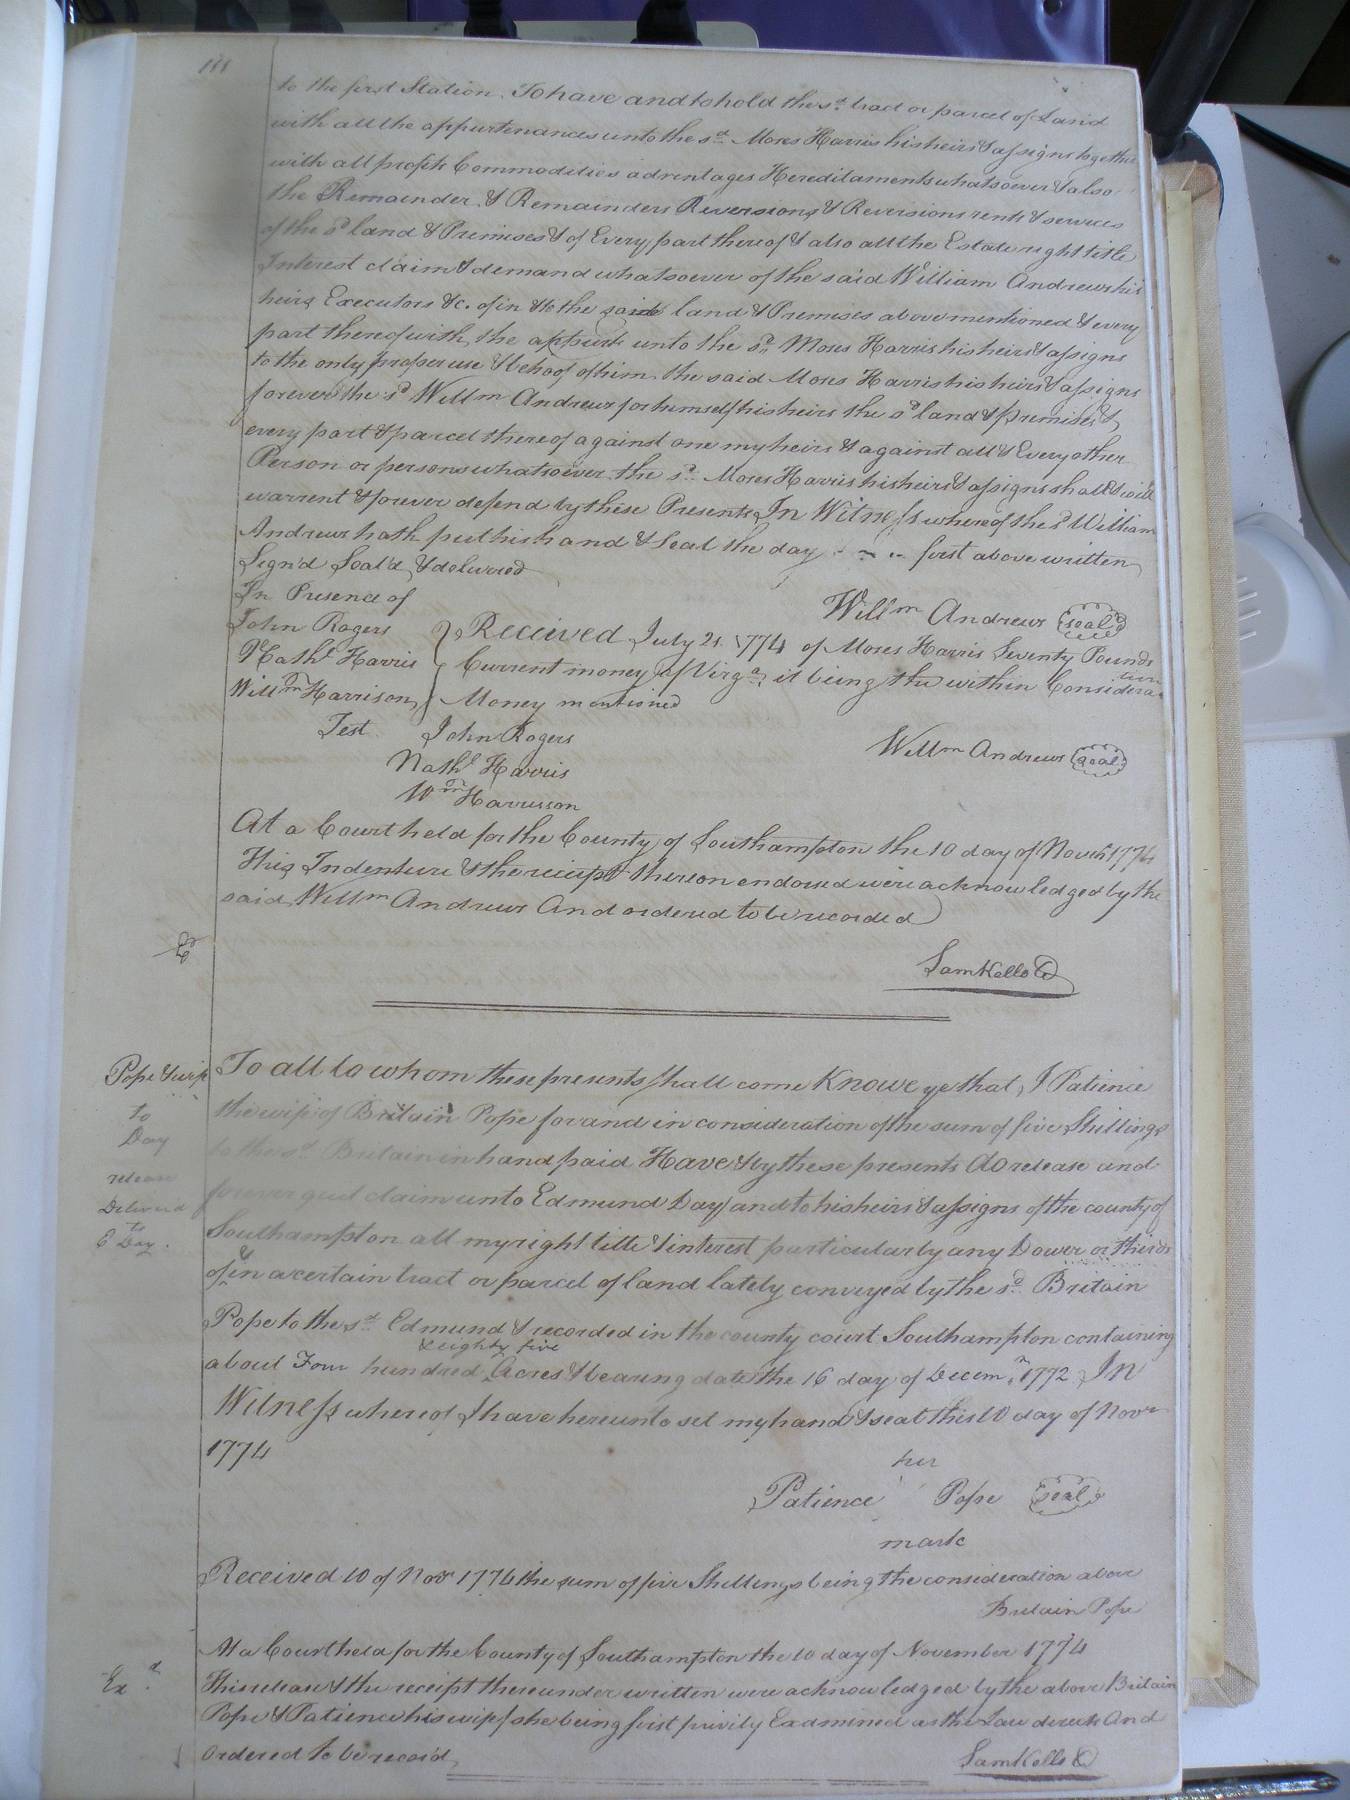 to the first Station. To have and to hold the sd. tract or parcel of Land
with all the appurtenances unto the sd. Moses Harris his heirs & assigns together
with all profits Commodities advantages Hereditaments whatsoever & also
the Remainder & Remainders Reversions & Reversions rents & services
of the sd land & Premises & of Every part thereof & also all the Estate right title
Interest claim & demand whatsoever of the said William Andrews his
heirs Executors &c. of in & to the said land & Premises above mentioned & every
part thereof with the appurts unto the sd. Moses Harris his heirs & assigns
to the only proper use & behoof of him the said Moses Harris his heirs & assigns
forever & the sd Willm Andrews for himself his heirs the sd land & premises &
every part & parcel thereof against one my heirs & against all & Every other
Person or persons whatsoever the sd. Moses Harris his heirs & assigns shall & will
warrent & forever defend by these Presents In Witness whereof the sd William
Andrews hath put his hand & Seal the day first above written
Sign'd Seal'd & delivered
In Presence of
Willm Andrews seal
John Rogers
Nathl Harris
Willm Harrison
Received July 21 1774 of Moses Harris Seventy Pounds
Current money of Virga. it being the within Consideration
Money mentioned
Test John Rogers
Willm Andrews seal
Nathl Harris
Wm Harrisson
At a Court held for the County of Southampton the 10 day of Novr 1774
This Indenture & the reciept thereon endorsed were acknowledged by the
said Willm Andrews And ordered to be recorded
Sam Kello
Pope & wife
to
Day
release
Deliver'd
to
E Day.
To all to whom these presents shall come Knowe ye that, I Patience
the wife of Britain Pope for and in consideration of the sum of five Shillings
to the sd. Britain in hand paid Have & by these presents do release and
forever quit claim unto Edmund Day and to his heirs & assigns of the county of
Southampton all my right title & interest particularly any Dower or thirds
of & in a certain tract or parcel of land lately conveyed by the sd. Britain
Pope to the sd. Edmund & recorded in the county court Southampton containing
about Four hundred & eighty five Acres & bearing date the 16 day of Decemr. 1772 In
Witness whereof I have hereunto set my hand & seal this 10 day of Novr
1774
her
Patience Pope seal
mark
Received 10 of Novr 1774 the sum of five Shillings being the consideration above
Britain Pope
At a Court held for the County of Southampton the 10 day of November 1774
Exd.
This release & the receipt thereunder written were acknowledged by the above Britain
Pope & Patience his wife she being first privily Examined as the Law directs And
ordered to be recor'd
Sam Kello